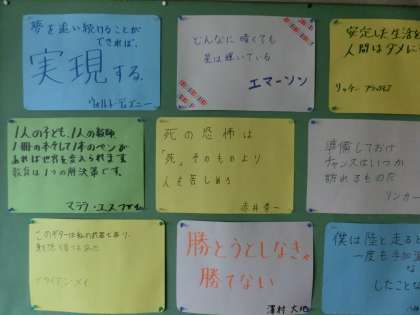 夢を追い続けることが
できれば、
実現する。
ウォルト・ディズニー
どんなに暗くても
星は輝いている
エマーソン
安定した生活を
人間はダメに
1人の子ども、1人の教師
1冊の本そして1本のペンが
あれば世界を変えられます
教育は1つの解決策です。
マララ・ユスフザイ
死の恐怖は
「死」そのものより
人を苦しめる
準備しておけ
チャンスはいつか
訪れるものだ
リンカー
このギターは私の
ブライアン・メイ
勝とうとしなきゃ
勝てない
澤村 大地
僕は陸と走ると
一度も
したことな